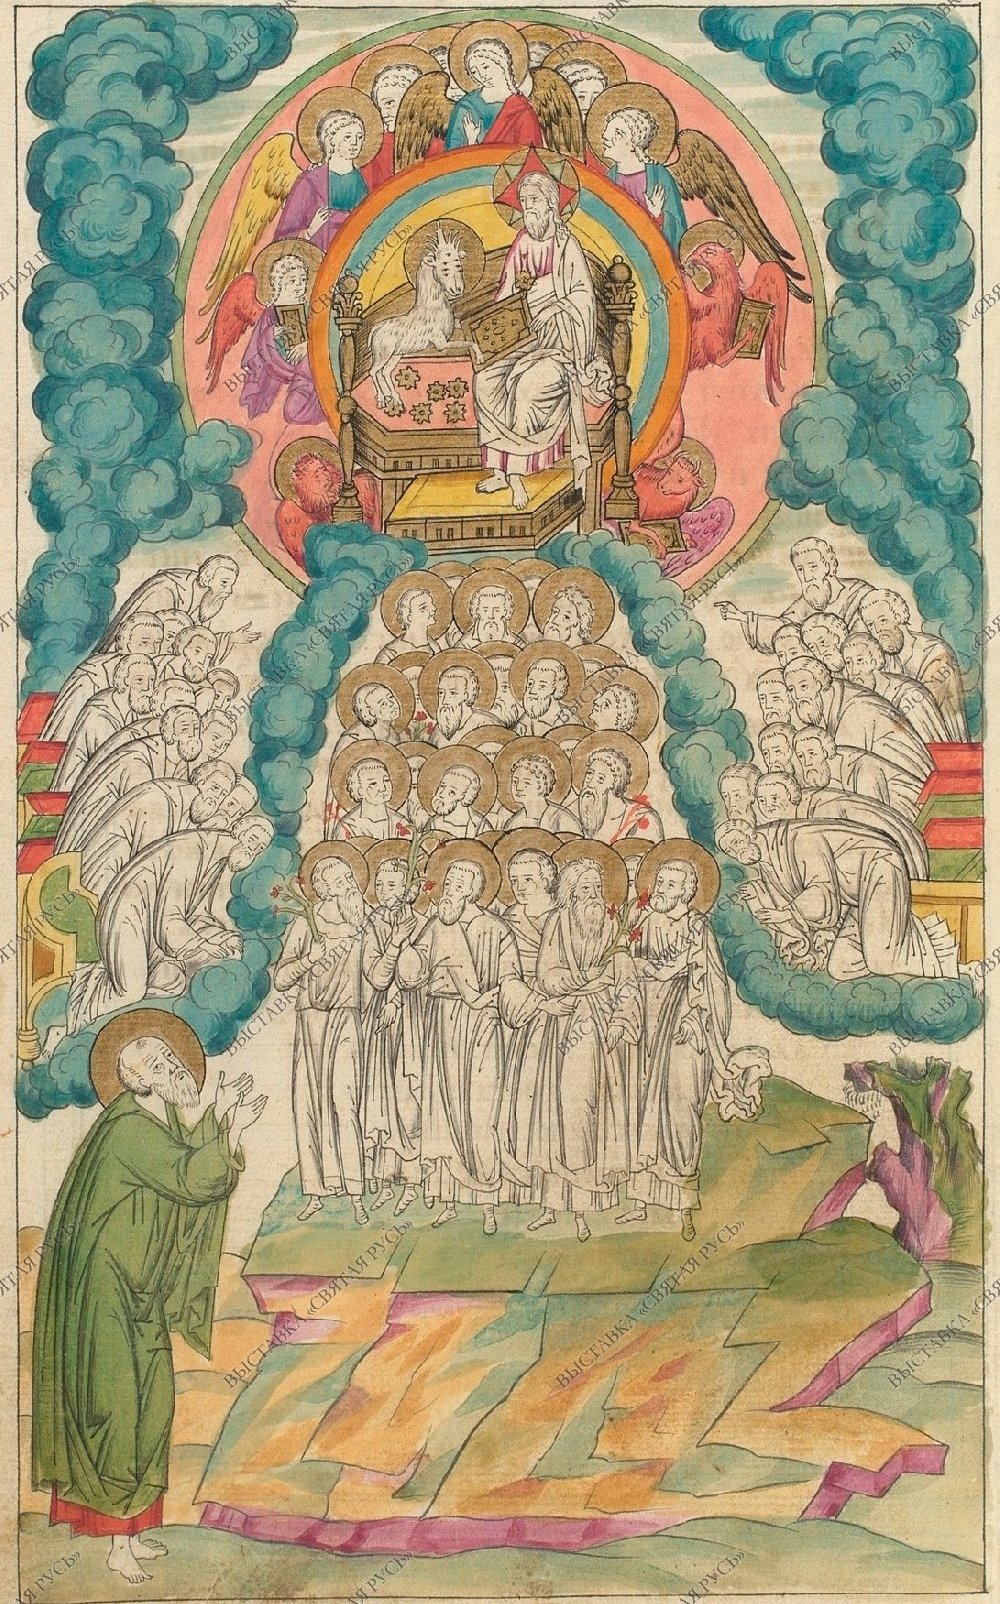 ВЫСТАВКА «СВЯТАЯ РУСЬ»
ВЫСТАВКА «СВЯТАЯ РУСЬ»
ВЫСТАВКА «СВЯТАЯ РУСЬ»
ВЫСТАВКА «СВЯТАЯ РУСЬ»
ВЫСТАВКА «СВЯТАЯ РУСЬ»
ВЫСТАВКА «СВЯТАЯ РУСЬ»
ВЫСТАВКА «СВЯТАЯ РУСЬ»
ВЫСТАВКА «СВЯТАЯ РУСЬ»